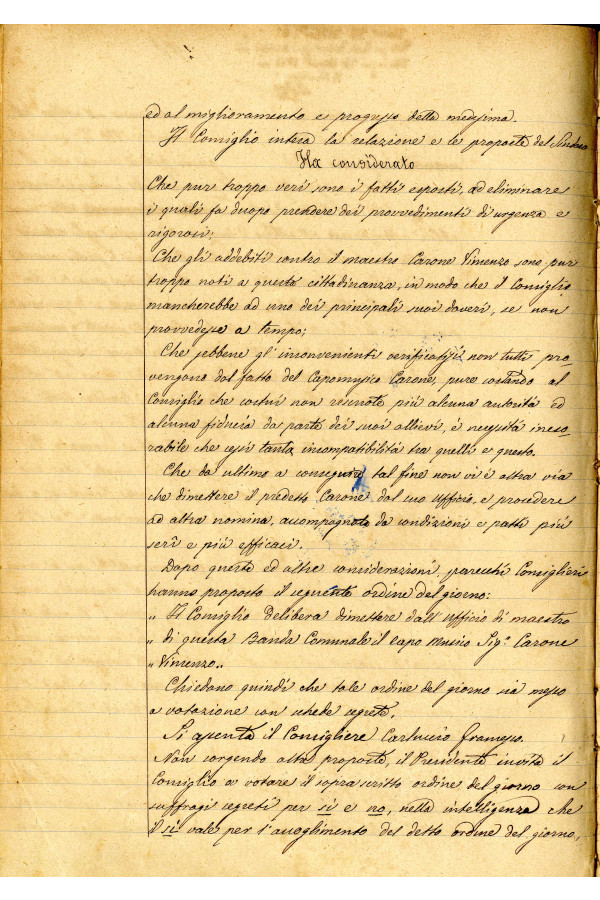 ed al miglioramento e progresso della medesima.
Il Consiglio intesa la relazione e le proposte del Sindaco
Ha considerato
Che pur troppo veri sono i fatti esposti, ad eliminare
i quali fa duopo prendere dei provvedimenti di urgenza e
rigorosi;
Che gli addebiti contro il maestro Carone Vincenzo sono pur
troppo noti a questa cittadinanza, in modo che il Consiglio
mancherebbe ad uno dei principali suoi doveri, se non
provvedesse a tempo;
Che sebbene gl'inconvenienti verificatisi non tutti pro
vengono dal fatto del Capomusico Carone, pure costando al
Consiglio che costui non riscuote più alcuna autorità ed
alcuna fiducia da parte dei suoi allievi, è necessità ineso-
rabile che cessi tanta incompatibilità tra quelli e questo.
Che da ultimo a conseguire tal fine non vi è altra via
che dimettere il predetto Carone dal suo Ufficio, e procedere
ad altra nomina, accompagnata da condizioni e patti più
serî e più efficaci.
Dopo queste ed altre considerazioni, parecchi Consiglieri
hanno proposto il seguente ordine del giorno:
„ Il Consiglio Delibera dimettere dall'ufficio di maestro
„ di questa Banda Comunale il Capo Musico Sigr. Carone
„ Vincenzo„
Chiedono quindi che tale ordine del giorno sia messo
a votazione con schede segrete.
Si assenta il Consigliere Carluccio Francesco.
Non sorgendo altra proposta, il Presidente invita il
Consiglio a votare il sopra scritto ordine del giorno con
suffragi segreti per si e no, nella intelligenza che
il si vale per l'accoglimento del detto ordine del giorno,